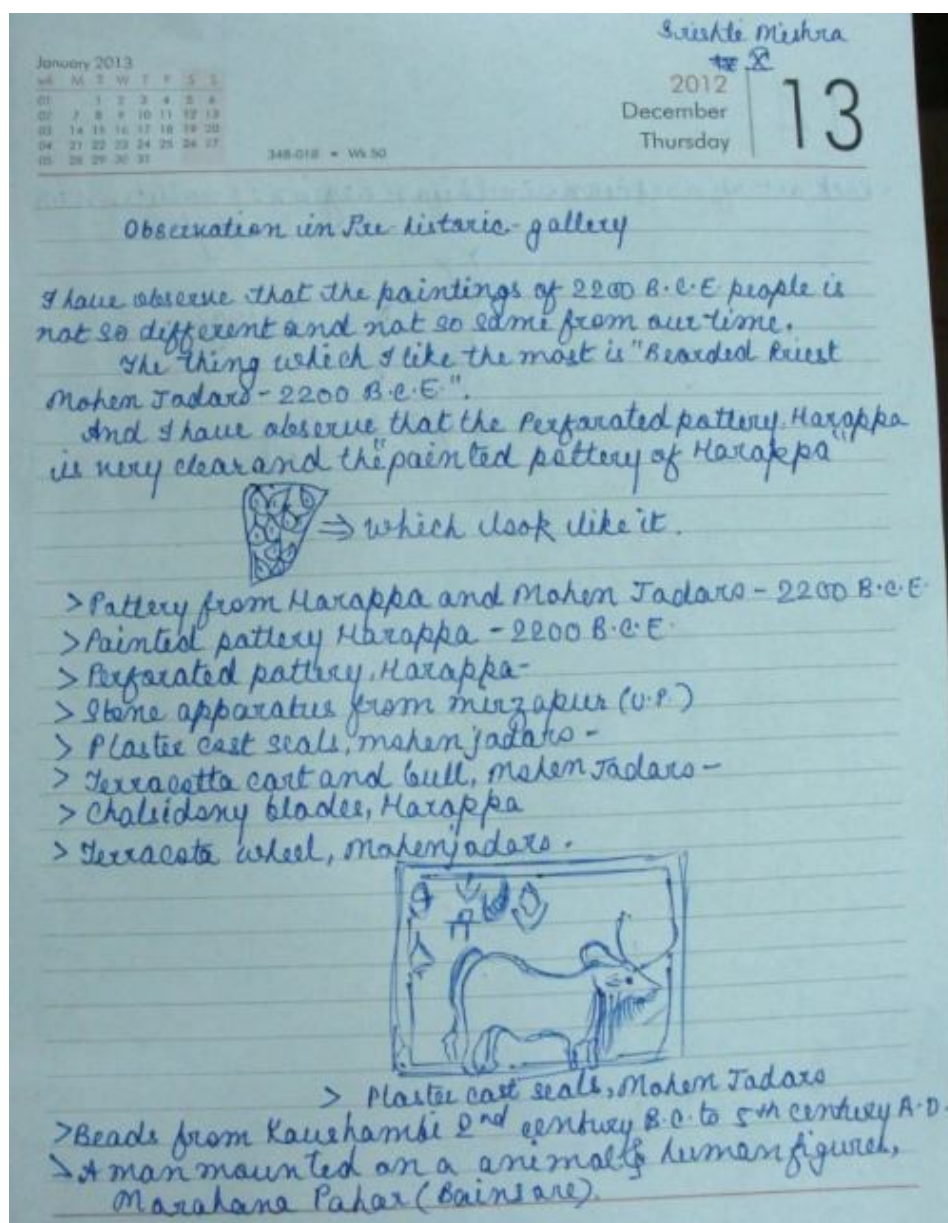 Srishti Mishra
X
January 2013
wk M T W T F S S
01 1 2 3 4 5 6
02 7 8 9 10 11 12 13
03 14 15 16 17 18 19 20
04 21 22 23 24 25 26 27
05 28 29 30 31
348-018 • Wk 50
2012
December
Thursday
13
Observation in Pre-historic-gallery
I have observe that the paintings of 2200 B.C.E people is
not so different and not so same from our time.
The thing which I like the most is "Bearded Priest
Mohen Jadaro - 2200 B.C.E.".
And I have observe that the Perforated pottery, Harappa
is very clear and the "painted pottery of Harappa"
⇒ which look like it.
> Pottery from Harappa and Mohen Jadaro - 2200 B.C.E.
> Painted pottery Harappa - 2200 B.C.E.
> Perforated pottery, Harappa-
> Stone apparatus from mirzapur (U.P.)
> Plaster cast seals, mohenjadaro -
> Terracotta cart and bull, Mohen Jadaro -
> Chalsidony blades, Harappa
> Terracota wheel, Mohenjadaro.
> Plaster cast seals, Mohen Jadaro
> Beads from Kaushambi 2nd century B.C. to 5th century A.D.
> A man mounted on a animal & human figures,
Marahana Pahar (Bainsare).